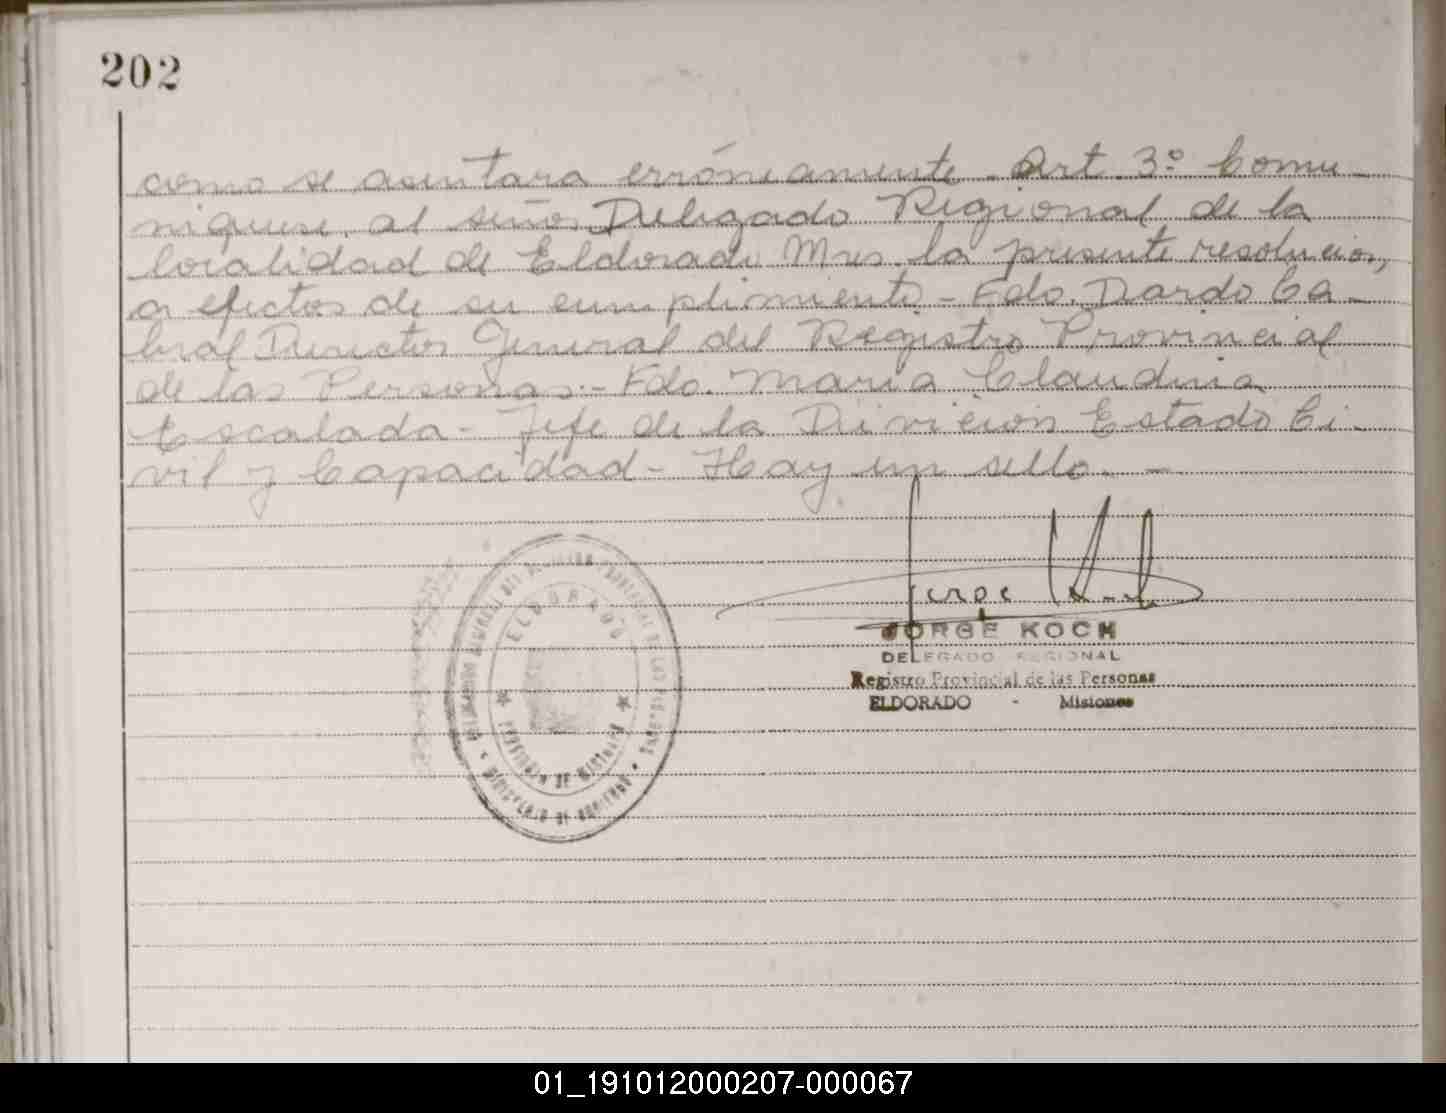 202
como se asentara erróneamente. Art. 3º Comu-
niquese al señor Delegado Regional de la
localidad de Eldorado Mnes. la presente resolucion,
a efectos de su cumplimiento - Fdo. Dardo Ca-
bral Director General del Registro Provincial
de las Personas.- Fdo. Maria Claudina
Escalada - Jefe de la Division Estado Ci-
vil y Capacidad - Hay un sello. -
ELDORADO
PROVINCIA DE MISIONES
MINISTERIO DE GOBIERNO
Jorge Koch
JORGE KOCH
DELEGADO REGIONAL
Registro Provincial de las Personas
ELDORADO - Misiones
01_191012000207-000067